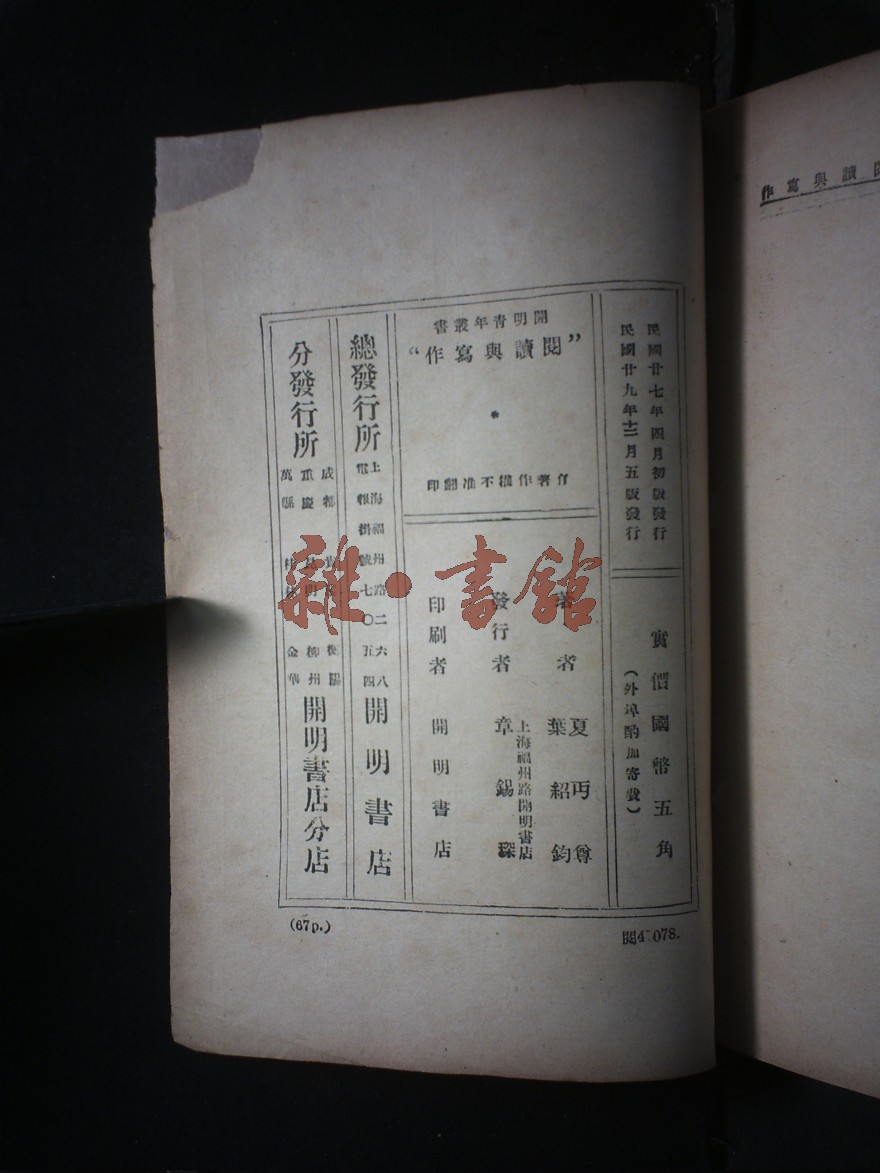 民國廿七年四月初版發行
民國廿九年十二月五版發行
實價國幣五角
(外埠酌加寄費)
開明青年叢書
“閱讀與寫作”
有著作權不准翻印
著者
夏丏尊
葉紹鈞
發行者
上海福州路開明書店
章錫琛
印刷者
開明書店
總發行所
上海福州路二六八
電報掛號七〇五四
開明書店
分發行所
成都
重慶
萬縣
昆明
衡陽
柳州
金華
開明書店分店
(67p.)
閱4 078.
閱讀與寫作
雜·書館